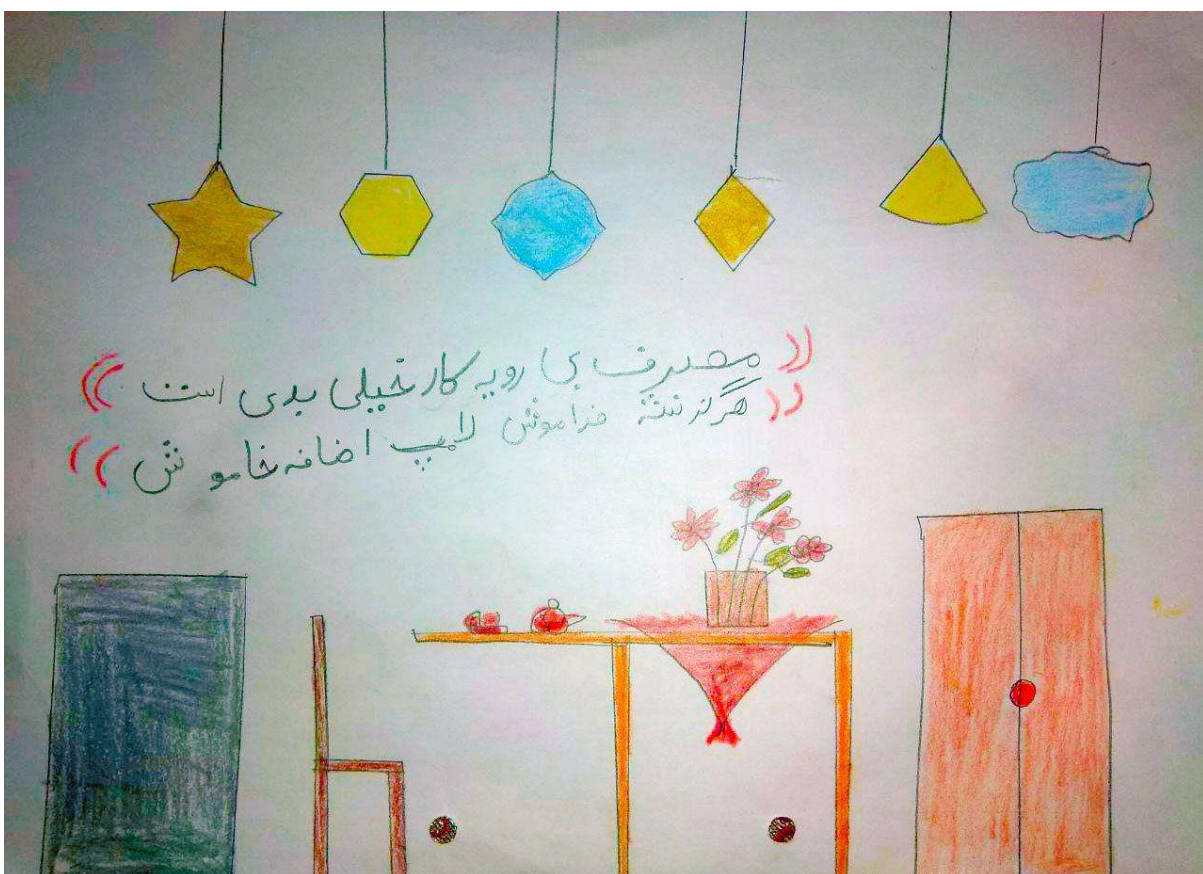 (( مصرف بی رویه کار خیلی بدی است ))
(( هرگز نشه فراموش لامپ اضافه خاموش ))